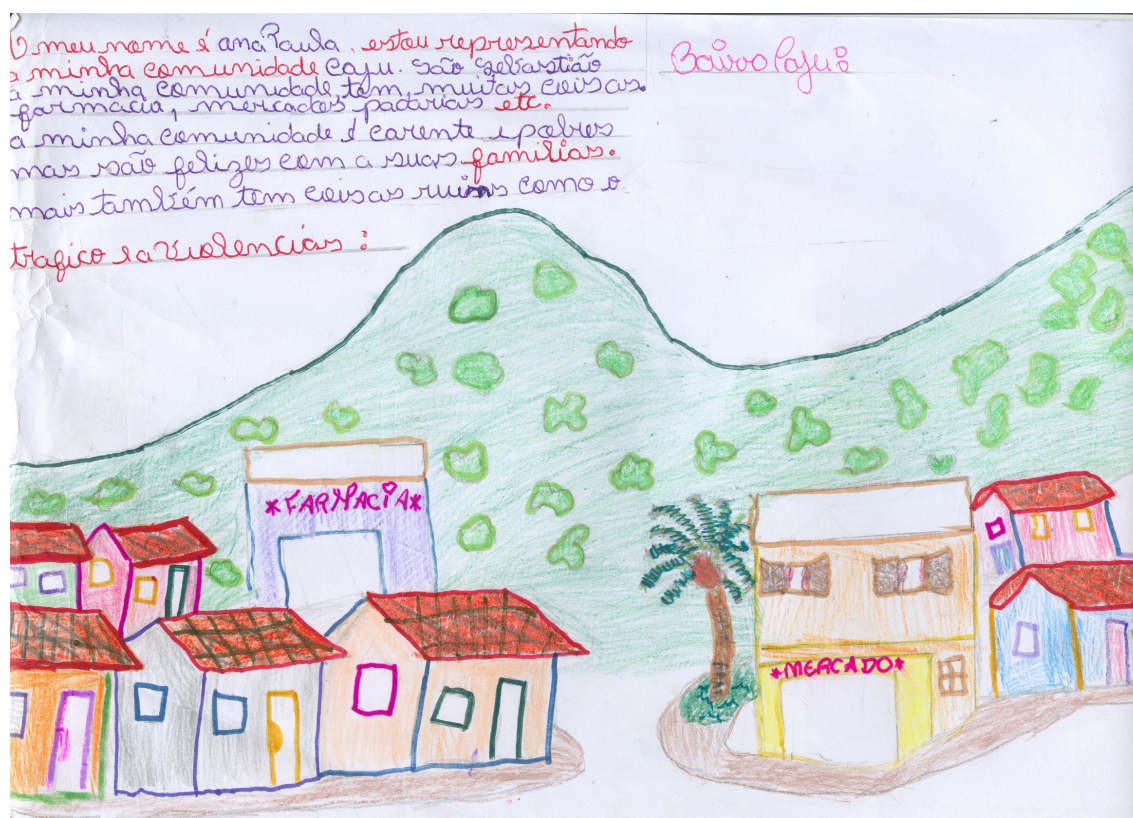 O meu nome é ana Paula. estou representando
a minha comunidade Caju. são sebastião
a minha comunidade tem muitas coisas.
farmacia, mercados padarias etc.
a minha comunidade é carente e pobres
mas são felizes com a suas familias.
mais também tem coisas ruins como o
trafico e a violencias :
Bairro Caju :
*FARMACIA*
*MERCADO*